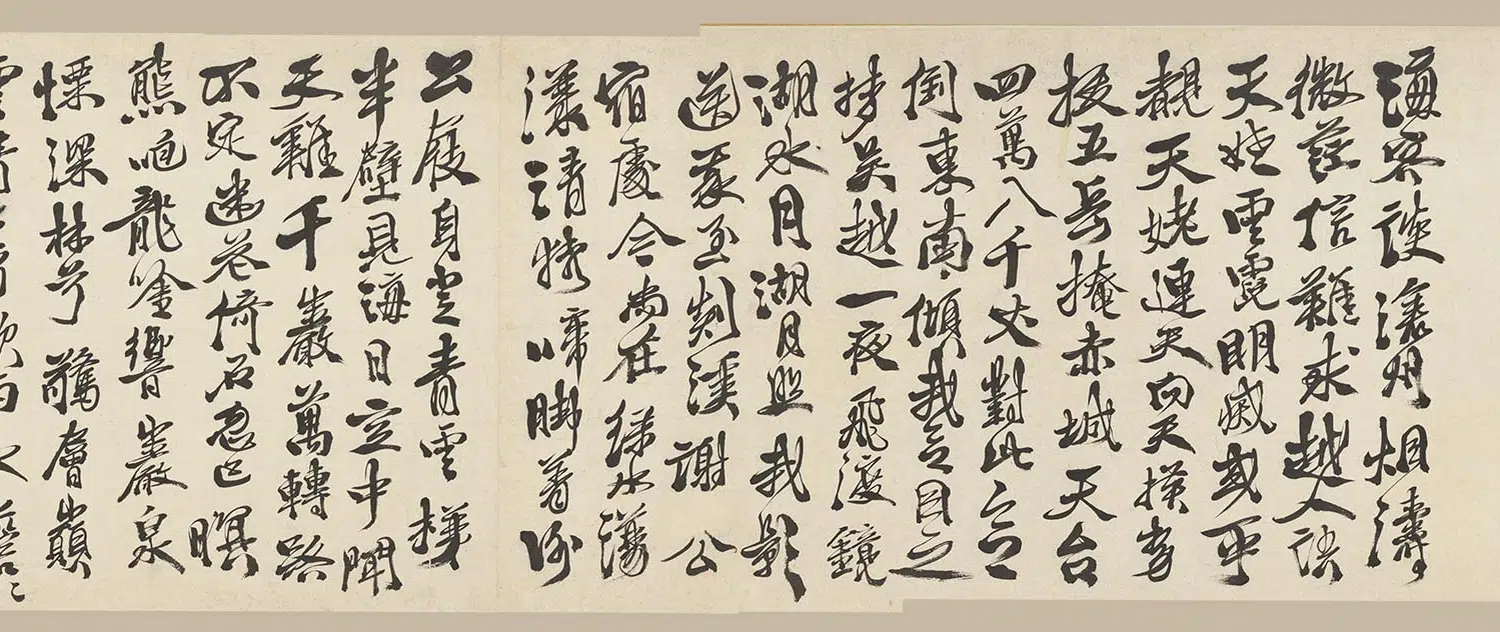 海客談瀛州烟濤
微茫信難求越人語
天姥雲霓明滅或乎
覩天姥連天向天橫勢
拔五岳掩赤城天台
四萬八千丈對此
倒東南傾我因之
夢吳越一夜飛渡鏡
湖水月湖月照我影
送我至剡溪謝公
宿處今尚在綠水蕩
漾清猿啼脚着謝
公屐身登青雲梯
半壁見海日空中聞
天雞千巖萬轉路
不定迷花倚石忽已暝
熊咆龍唫響巖泉
慄深林兮驚層巔